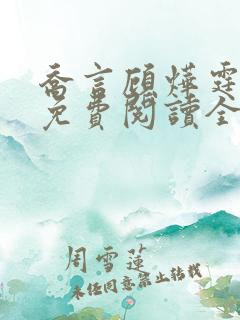 喬言顧燁霆
免費閱讀全
周雪蓮
未经同意禁止转载